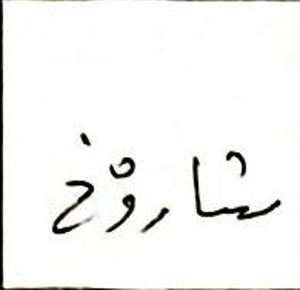 شارۆخ